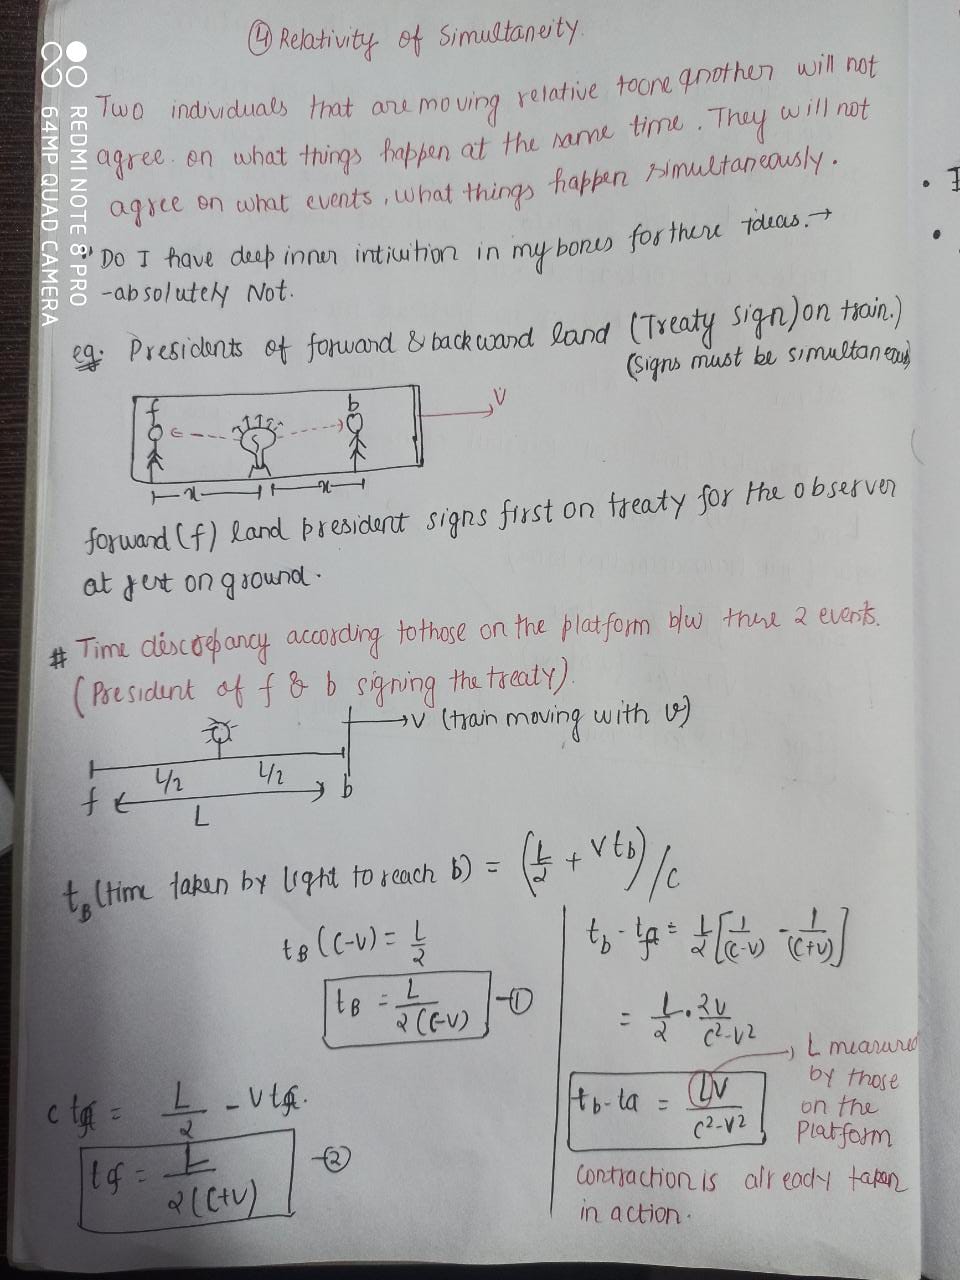 ④ Relativity of Simultaneity.
Two individuals that are moving relative to one another will not
agree on what things happen at the same time. They will not
agree on what events, what things happen simultaneously.
"Do I have deep inner intiuition in my bones for there ideas. →
-absolutely Not.
eg: Presidents of forward & backward land (Treaty sign) on train.)
(signs must be simultaneous)
f b v
x x
forward (f) land president signs first on treaty for the observer
at rest on ground.
# Time discrepancy according to those on the platform b/w there 2 events.
(President of f & b signing the treaty).
→ v (train moving with v)
L/2 L/2
f L b
tB (time taken by light to reach b) = (L/2 + Vtb)/c
tB (C-V) = L/2
tB = L/2(C-V) -①
c tf = L/2 - V tf.
tf = L/2(C+V) -②
tb - tf = L/2 [1/(C-V) - 1/(C+V)]
= L/2 . 2V/C²-V²
tb - ta = LV/C²-V²
→ L measured
by those
on the
Platform
Contraction is already taken
in action.
REDMI NOTE 8 PRO
64MP QUAD CAMERA